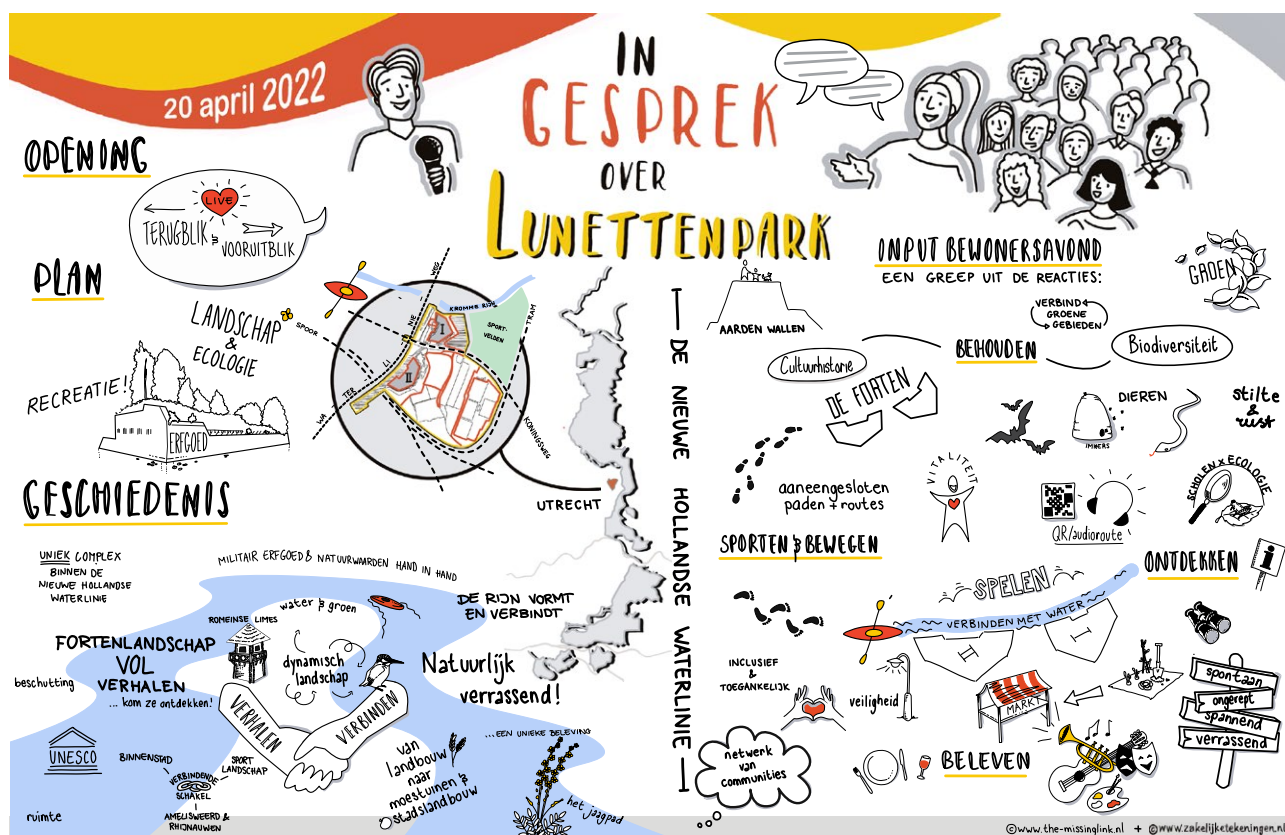 20 april 2022
IN
GESPREK
OVER
LUNETTENPARK
OPENING
LIVE
TERUGBLIK &
VOORUITBLIK
PLAN
LANDSCHAP
&
ECOLOGIE
RECREATIE!
ERFGOED
SPOOR
WA
TER
LI
NIE
WEG
KROMME RIJN
SPORT-
VELDEN
TRAM
I
II
KONINGSWEG
UTRECHT
DE NIEUWE HOLLANDSE WATERLINIE
GESCHIEDENIS
UNIEK COMPLEX
BINNEN DE
NIEUWE HOLLANDSE
WATERLINIE
MILITAIR ERFGOED & NATUURWAARDEN HAND IN HAND
water & groen
ROMEINSE LIMES
DE RIJN VORMT
EN VERBINDT
FORTENLANDSCHAP
VOL
VERHALEN
... kom ze ontdekken!
beschutting
dynamisch
landschap
Natuurlijk
verrassend!
VERHALEN
VERBINDEN
UNESCO
BINNENSTAD
SPORT
LANDSCHAP
VERBINDENDE
SCHAKEL
AMELISWEERD &
RHIJNAUWEN
ruimte
van
landbouw
naar
moestuinen &
stadslandbouw
...EEN UNIEKE BELEVING
het jaagpad
INPUT BEWONERSAVOND
EEN GREEP UIT DE REACTIES:
GROEN
AARDEN WALLEN
VERBIND
GROENE
GEBIEDEN
BEHOUDEN
Biodiversiteit
Cultuurhistorie
DE FORTEN
DIEREN
IMKERS
stilte
&
rust
aaneengesloten
paden + routes
VITALITEIT
QR/audioroute
SCHOLEN X ECOLOGIE
SPORTEN & BEWEGEN
ONTDEKKEN
i
SPELEN
VERBINDEN MET WATER
I
II
INCLUSIEF
&
TOEGANKELIJK
veiligheid
MARKT
spontaan
ongerept
spannend
verrassend
netwerk
van
communities
BELEVEN
LIVE
©www.the-missingink.nl + ©www.zakelijketekeningen.nl